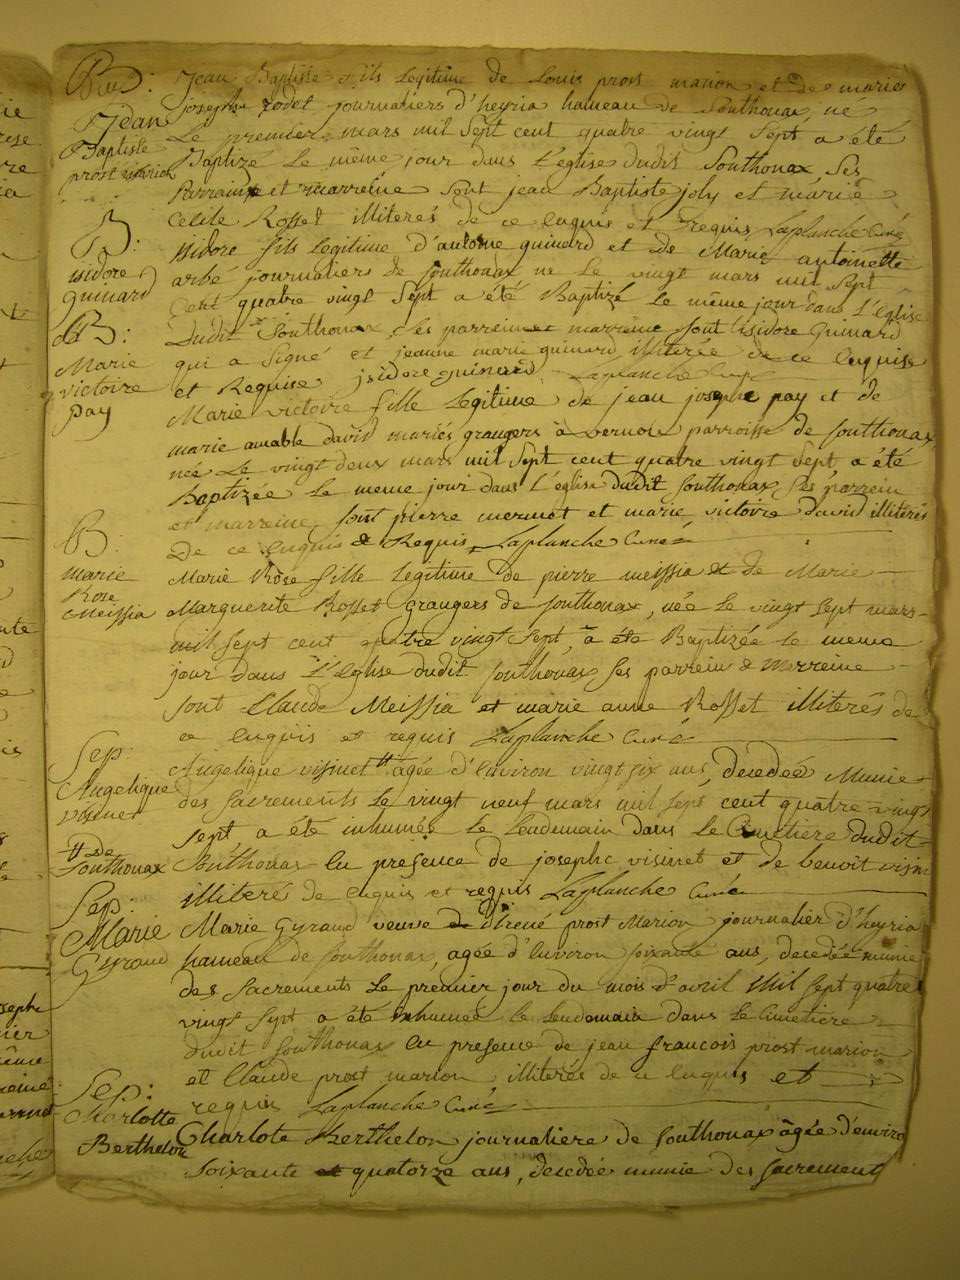 B :
Jean
Baptiste
prost marion
Jean Baptiste fils legitime de Louis prost marion et de marie
joseph rodet journaliers d'heyria hameau de Southonax, né
Le premier mars mil sept cent quatre vingt sept a été
Baptizé le même jour dans l'eglise dudit Southonax, ses
parrain et marreine sont jean Baptiste joly et marie
Cecile Rosset illiterés de ce enquis et requis Laplanche Curé
B :
isidore
guinard
isidore fils legitime d'antoine guinard et de Marie antoinette
arbé journaliers de southonax né le vingt mars mil sept
Cent quatre vingt sept a été Baptizé le même jour dans l'eglise
dudit Southonax, ses parrein et marreine sont isidore Guinard
qui a signé et jeanne marie guinard illiterée de ce enquise
et Requise jsidore guinard Laplanche Curé
B :
Marie
victoire
pay
Marie victoire fille legitime de jean joseph pay et de
marie amable david mariés grangers à vernois parroisse de southonax,
née le vingt deux mars mil sept cent quatre vingt sept a été
baptizée le meme jour dans l'eglise dudit southonax, ses parrein
et marreine sont pierre mermet et marie victoire david illiterés
de ce enquis & Requis Laplanche Curé
B :
marie
Rose
Meissia
Marie Rose fille legitime de pierre meissia et de Marie
Marguerite Rosset grangers de southonax, née le vingt sept mars
mil sept cent quatre vingt sept, a été Baptizée le meme
jour dans l'Eglise dudit southonax, ses parrein & marreine
sont Claude Meissia et marie anne Rosset illiterés de
ce enquis et requis Laplanche Curé
Sep:
Angelique
visinet
# de
Southonax
Angelique visinet # agée d'environ vingt six ans, decedée Munie
des sacrements le vingt neuf mars mil sept cent quatre vingt
sept a été inhumée le lendemain dans le Cimetiere dudit
Southonax en presence de josephe visinet et de benoit
illiteré de enquis et requis Laplanche Curé
Sep:
Marie
Gyraud
Marie Gyraud veuve de prost Marion journalier d'heyria
hameau de southonax, agée d'environ soixante ans, decedée munie
des sacrements le premier jour du mois d'avril mil sept quatre
vingt sept a été inhumée le lendemain dans le Cimetiere
dudit southonax en presence de jean francois prost marion
et Claude prost marion illiterés de ce enquis et
requis Laplanche Curé
Sep:
Charlotte
Berthelon
Charlote Berthelon journaliere de southonax agée d'enviro
soixante et quatorze ans, decedée munie des sacrement